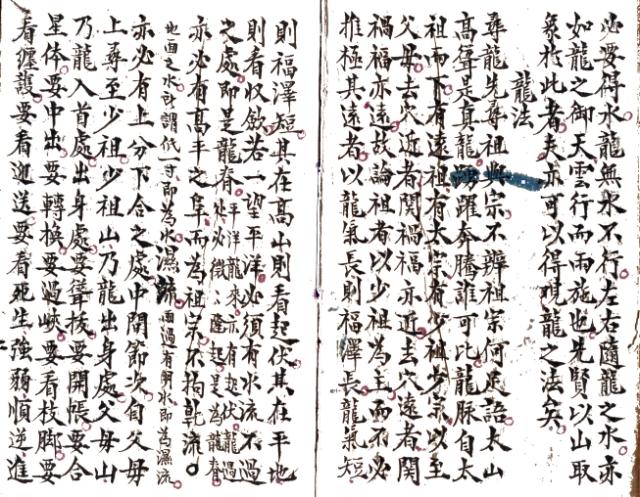 必要得水龍無水不行左右隨龍之水亦
如龍之御天雲行而雨施也先賢以山取
象於此者夫亦可以得覘龍之法矣
龍法
尋龍先尋祖與宗不辨祖宗何足語太山
高聳是真龍踴躍奔騰誰可比龍脉自太
祖而下有遠祖有太宗有少祖少宗以至
父母去穴近者関禍福亦近去穴遠者関
禍福亦遠故論祖者以少祖為主而不必
推極其遠者以龍氣長則福澤長龍氣短
則福澤短其在高山則看起伏其在平地
則看收歛若一望平洋必須有水流不過
之處即是龍脊平洋龍來亦有起伏龍過處必微微隆起是為龍脊
亦必有高平之阜而為祖宗不拘乾流
地面之水所謂低一寸即為水濕流雨過有明水即為濕流
亦必有上分下合之處中間節次自父母
上尋至少祖少祖山乃龍出身處父母山
乃龍入首處出身處要聳拔要開帳要合
星体要中出要轉換要過峽要看枝脚要
看纏護要看迎送要看死生強弱順逆進